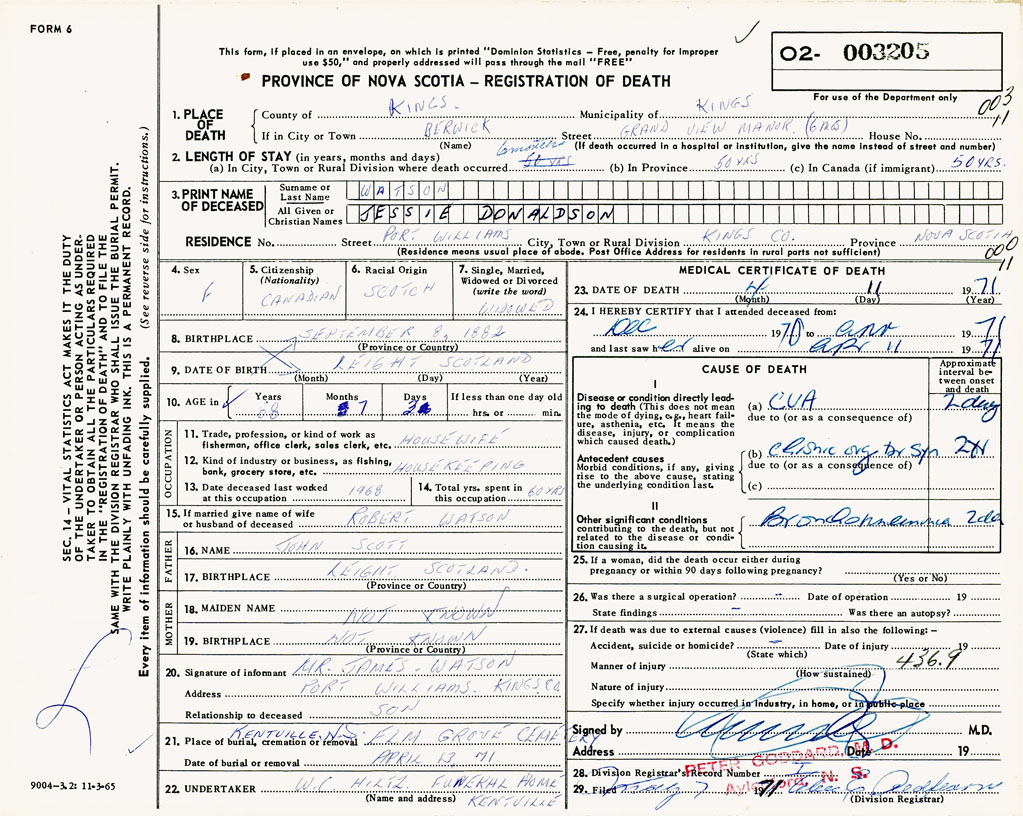 FORM 6
This form, if placed in an envelope, on which is printed "Dominion Statistics – Free, penalty for improper
use $50," and properly addressed will pass through the mail "FREE"
PROVINCE OF NOVA SCOTIA – REGISTRATION OF DEATH
O2- 003205
For use of the Department only
003
11
1. PLACE OF DEATH
County of KINGS. Municipality of KINGS
If in City or Town BERWICK Street GRAND VIEW MANOR. (6AB) House No.
(Name) (If death occurred in a hospital or institution, give the name instead of street and number)
2. LENGTH OF STAY (in years, months and days)
6 months
(a) In City, Town or Rural Division where death occurred 50 yrs (b) In Province 50 YRS (c) In Canada (if immigrant) 50 YRS.
3. PRINT NAME OF DECEASED
Surname or Last Name WATSON
All Given or Christian Names JESSIE DONALDSON
RESIDENCE No. Street PORT WILLIAMS City, Town or Rural Division KINGS CO. Province NOVA SCOTIA
(Residence means usual place of abode. Post Office Address for residents in rural parts not sufficient)
000
11
4. Sex F
5. Citizenship (Nationality) CANADIAN
6. Racial Origin SCOTCH
7. Single, Married, Widowed or Divorced (write the word) WIDOWED
8. BIRTHPLACE SEPTEMBER 8, 1882
(Province or Country)
9. DATE OF BIRTH LEIGHT SCOTLAND
(Month) (Day) (Year)
10. AGE in Years 88 Months 7 Days 3 If less than one day old
hrs. or min.
OCCUPATION
11. Trade, profession, or kind of work as
fisherman, office clerk, sales clerk, etc. HOUSEWIFE
12. Kind of industry or business, as fishing,
bank, grocery store, etc. HOUSEKEEPING
13. Date deceased last worked
at this occupation 1968
14. Total yrs. spent in
this occupation 60 YRS
15. If married give name of wife
or husband of deceased ROBERT WATSON
FATHER
16. NAME JOHN SCOTT
17. BIRTHPLACE LEIGHT SCOTLAND.
(Province or Country)
MOTHER
18. MAIDEN NAME NOT KNOWN
19. BIRTHPLACE NOT KNOWN
(Province or Country)
20. Signature of informant MR. JAMES WATSON
Address PORT WILLIAMS. KINGS CO.
Relationship to deceased SON
21. Place of burial, cremation or removal KENTVILLE N.S. ELM GROVE CEMETERY
Date of burial or removal APRIL 13, 71
22. UNDERTAKER W.C. HILTZ FUNERAL HOME
(Name and address) KENTVILLE
MEDICAL CERTIFICATE OF DEATH
23. DATE OF DEATH 4 11 1971
(Month) (Day) (Year)
24. I HEREBY CERTIFY that I attended deceased from:
Dec 1970 to apr 1971
and last saw her alive on apr 11 1971
CAUSE OF DEATH
Approximate interval between onset and death
I
Disease or condition directly leading to death (This does not
mean the mode of dying, e.g., heart failure, asthenia, etc. It means the
disease, injury, or complication which caused death.)
(a) CVA 2 days
due to (or as a consequence of)
Antecedent causes
Morbid conditions, if any, giving rise to the above cause, stating
the underlying condition last.
(b) Chronic org br Syn
due to (or as a consequence of)
(c)
II
Other significant conditions
contributing to the death, but not related to the disease or condition causing it.
Bronchopneumonia 2da
25. If a woman, did the death occur either during
pregnancy or within 90 days following pregnancy?
(Yes or No)
26. Was there a surgical operation? – Date of operation 19
State findings – Was there an autopsy?
27. If death was due to external causes (violence) fill in also the following: –
Accident, suicide or homicide? – Date of injury 19
(State which)
436.9
Manner of injury
(How sustained)
Nature of injury
Specify whether injury occurred in industry, in home, or in public place
Signed by M.D.
Address Date 19
PETER GODDARD, M. D.
Aylesford, N. S.
28. Division Registrar's Record Number
29. Filed May 7 1971
(Division Registrar)
SEC. 14 – VITAL STATISTICS ACT MAKES IT THE DUTY
OF THE UNDERTAKER OR PERSON ACTING AS UNDER-
TAKER TO OBTAIN ALL THE PARTICULARS REQUIRED
IN THE "REGISTRATION OF DEATH" AND TO FILE THE
SAME WITH THE DIVISION REGISTRAR WHO SHALL ISSUE THE BURIAL PERMIT.
WRITE PLAINLY WITH UNFADING INK. THIS IS A PERMANENT RECORD.
Every item of information should be carefully supplied. (See reverse side for instructions.)
9004–3.2: 11-3-65